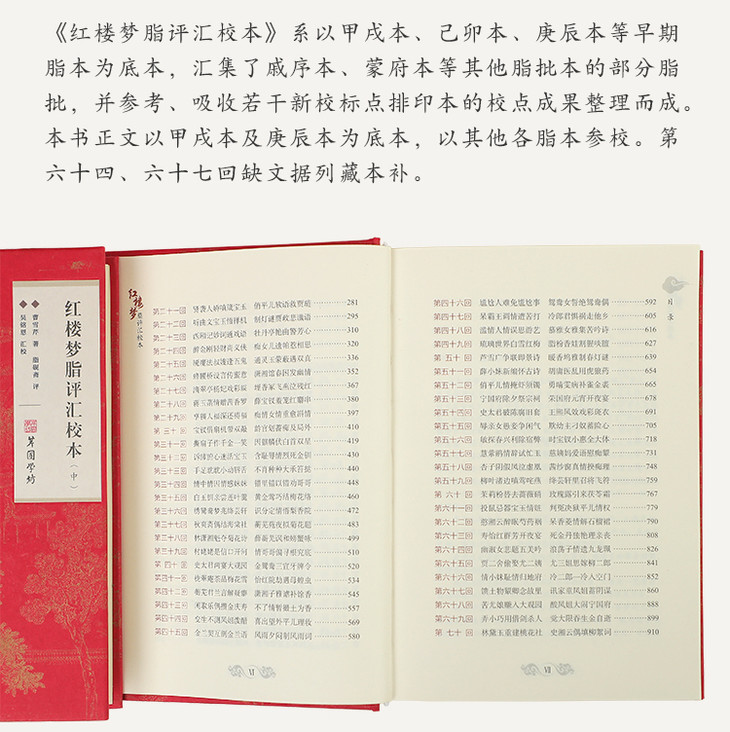 《红楼梦脂评汇校本》系以甲戌本、己卯本、庚辰本等早期
脂本为底本，汇集了戚序本、蒙府本等其他脂批本的部分脂
批，并参考、吸收若干新校标点排印本的校点成果整理而成。
本书正文以甲戌本及庚辰本为底本，以其他各脂本参校。第
六十四、六十七回缺文据列藏本补。
曹雪芹 著 脂砚斋 评
吴铭恩 汇校
红楼梦脂评汇校本（中）
红楼梦
脂评汇校本
第二十一回 贤袭人娇嗔箴宝玉 俏平儿软语救贾琏 281
第二十二回 听曲文宝玉悟禅机 制灯谜贾政悲谶语 295
第二十三回 西厢记妙词通戏语 牡丹亭艳曲警芳心
第二十四回 醉金刚轻财尚义侠 痴女儿遗帕惹相思
第二十五回 魇魔法叔嫂逢五鬼 通灵玉蒙蔽遇双真
第二十六回 蜂腰桥设言传蜜意 潇湘馆春困发幽情
第二十七回 滴翠亭杨妃戏彩蝶 埋香冢飞燕泣残红
第二十八回 蒋玉菡情赠茜香罗 薛宝钗羞笼红麝串
第二十九回 享福人福深还祷福 痴情女情重愈斟情
第三十回 宝钗借扇机带双敲 龄官划蔷痴及局外
第三十一回 撕扇子作千金一笑 因麒麟伏白首双星
第三十二回 诉肺腑心迷活宝玉 含耻辱情烈死金钏
第三十三回 手足耽耽小动唇舌 不肖种种大承笞挞
第三十四回 情中情因情感妹妹 错里错以错劝哥哥
第三十五回 白玉钏亲尝莲叶羹 黄金莺巧结梅花络
第三十六回 绣鸳鸯梦兆绛芸轩 识分定情悟梨香院
第三十七回 秋爽斋偶结海棠社 蘅芜苑夜拟菊花题
第三十八回 林潇湘魁夺菊花诗 薛蘅芜讽和螃蟹咏
第三十九回 村姥姥是信口开河 情哥哥偏寻根究底
第四十回 史太君两宴大观园 金鸳鸯三宣牙牌令
第四十一回 怡红院劫遇母蝗虫
第四十二回 蘅芜君兰言解疑癖 潇湘子雅谑补馀香
第四十三回 闲取乐偶攒金庆寿 不了情暂撮土为香
第四十四回 变生不测凤姐泼醋 喜出望外平儿理妆 568
第四十五回 金兰契互剖金兰语 风雨夕闷制风雨词 580
VI
目录
第四十六回 尴尬人难免尴尬事 鸳鸯女誓绝鸳鸯偶 592
第四十七回 呆霸王调情遭苦打 冷郎君惧祸走他乡 605
第四十八回 滥情人情误思游艺 慕雅女雅集苦吟诗 618
第四十九回 琉璃世界白雪红梅 脂粉香娃割腥啖膻
第五十回 芦雪广争联即景诗 暖香坞雅制春灯谜
第五十一回 薛小妹新编怀古诗 胡庸医乱用虎狼药
第五十二回 俏平儿情掩虾须镯 勇晴雯病补雀金裘
第五十三回 宁国府除夕祭宗祠 荣国府元宵开夜宴
第五十四回 史太君破陈腐旧套 王熙凤效戏彩斑衣
第五十五回 辱亲女愚妾争闲气 欺幼主刁奴蓄险心
第五十六回 敏探春兴利除宿弊 时宝钗小惠全大体
第五十七回 慧紫鹃情辞试忙玉 慈姨妈爱语慰痴颦
第五十八回 杏子阴假凤泣虚凰 茜纱窗真情揆痴理
第五十九回 柳叶渚边嗔莺咤燕 绛芸轩里召将飞符
第六十回 茉莉粉替去蔷薇硝 玫瑰露引来茯苓霜
第六十一回 投鼠忌器宝玉情赃 判冤决狱平儿情权
第六十二回 憨湘云醉眠芍药裀 呆香菱情解石榴裙
第六十三回 寿怡红群芳开夜宴 死金丹独艳理亲丧
第六十四回 幽淑女悲题五美吟 浪荡子情遗九龙珮
第六十五回 贾二舍偷娶尤二姨 尤三姐思嫁柳二郎
第六十六回 情小妹耻情归地府 冷二郎一冷入空门
第六十七回 馈土物颦卿念故里 讯家童凤姐蓄阴谋
第六十八回 苦尤娘赚入大观园 酸凤姐大闹宁国府
第六十九回 弄小巧用借剑杀人 觉大限吞生金自逝 899
第七十回 林黛玉重建桃花社 史湘云偶填柳絮词 910
VII